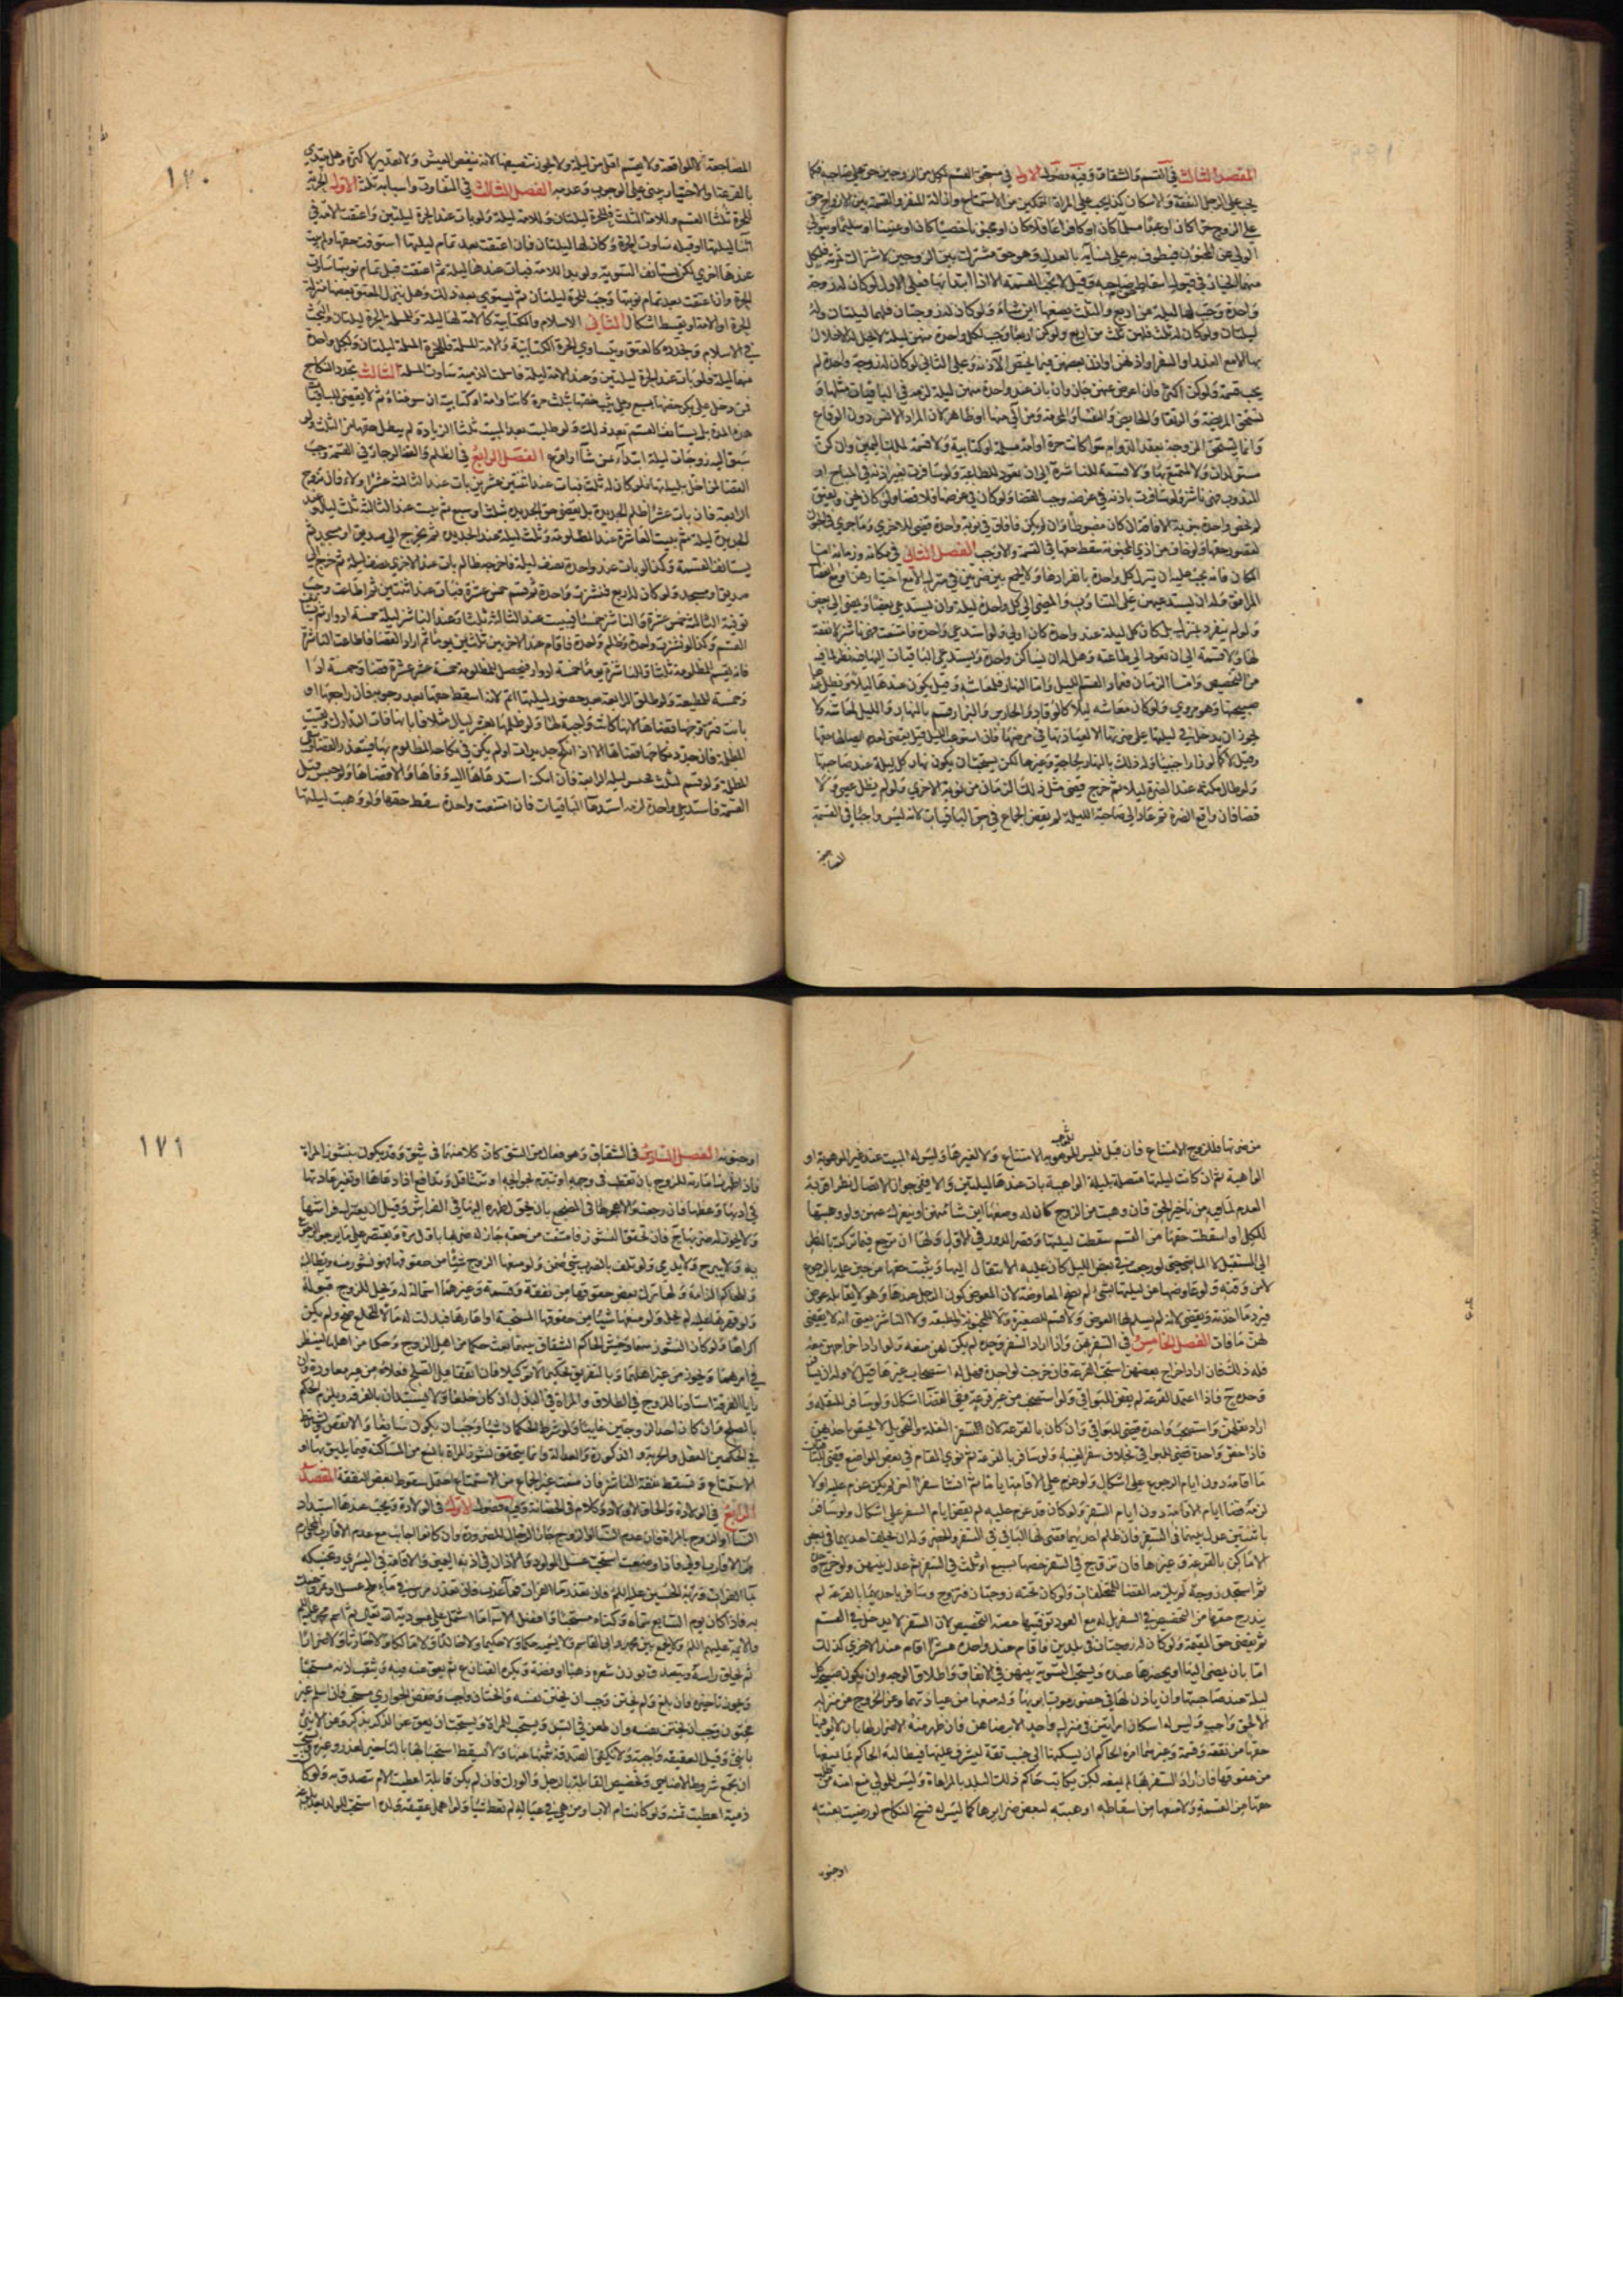 المقصد الثالث في القسم والشقاق وفيه فصول الاول في مستحق القسم لكل من الزوجين حق على صاحبه فكما
يجب على الزوج النفقة والاسكان كذا يجب على المراة التمكين من الاستمتاع وازالة المنفر والقسمة بين الازواج حق
على الزوج حرا كان او عبدا مسلما كان او كافرا عاقلا كان او مجنونا خصيا كان او عنينا او سليما ويتولى
الولي عن المجنون فيطوف به على نسائه بالعدل وهو حق مشترك بين الزوجين لاشتراك ثمرته فلكل
منهما الخيار في قبول اسقاط صاحبه وقيل لا تجب القسمة الا اذا ابتدا بها فعلى الاول لو كان له زوجة
واحدة وجب لها ليلة من اربع والثلث يضعها اين شاء ولو كان له زوجتان فلهما ليلتان وله
ليلتان ولو كان له ثلث فلهن ثلث من اربع ولو كن اربعا وجب لكل واحدة منهن ليلة لا يحل له الاخلال
بها الا مع العذر او السفر او اذنهن او اذن بعضهن فيما يختص الآذنة وعلى الثاني لو كان له زوجة واحدة لم
يجب قسمة ولو كن اكثر فان اعرض عنهن جاز وان بات عند واحدة منهن ليلة لزمه في الباقيات مثلها و
تستحق المريضة والرتقاء والحايض والنفساء والمحرمة ومن الى منها او ظاهر لان المراد الانس دون الوقاع
وانما يستحق الزوجة بعقد الدوام سواء كانت حرة او امة مسلمة او كتابية ولا قسمة لملك اليمين وان كن
مستولدات ولا لمتمتع بها ولا قسمة للناشزة الى ان تعود للطاعة ولو سافرت بغير اذنه في المباح او
المندوب فهي ناشز ولو سافرت باذنه في غرضه وجب القضاء ولو كان في غرضها فلا قضاء ولو كان يجن ويفيق
لم يختص واحدة بنوبة الافاقة ان كان مضبوطا وان لم يكن فافاق في نوبة واحدة قضى للاخرى وما جرى في الجنون
لقصور حقها ولو خاف من اذى المجنونة سقط حقها في القسمة والا وجب الفصل الثاني في مكانه وزمانه اما
المكان فانه يجب عليه ان ينزل كل واحدة بانفرادها ولا يجمع بين ضرتين في منزل الا مع اختيارهن او مع انفصال
المرافق وله ان يستدعيهن على التناوب والمضي الى كل واحدة ليلة وان يستدعي بعضا ويمضي الى بعض
ولو لم ينفرد بمنزل بل كان كل ليلة عند واحدة كان اولى ولو استدعى واحدة فامتنعت فهي ناشز لا نفقة
لها ولا قسمة الى ان تعود الى طاعته وهل له ان يساكن واحدة ويستدعي الباقيات اليها فيه نظر لما فيه
من التخصيص واما الزمان فعماد القسم الليل واما النهار فلمعاشه وقيل يكون عندها ليلا ويظل عندها
صبيحتها وهو مروي ولو كان معاشه ليلا كالوقاد والحارس والبزار قسم بالنهار والليل لمعاشه ولا
يجوز ان يدخل في ليلتها على ضرتها الا لعيادتها في مرضها فان استوعب الليل قيل يقضي لعدم ايصالها حقها
وقيل لا كما لو زار اجنبيا وله ذلك بالنهار لحاجة وغيرها لكن يستحب ان يكون نهار كل ليلة عند صاحبتها
ولو طال مكثه عند الضرة ليلا ثم خرج قضى مثل ذلك الزمان من نوبة الاخرى ولو لم يطل عصى ولا
قضاء فان واقع الضرة ثم عاد الى صاحبة الليلة لم يقض الجماع في حق الباقيات لانه ليس واجبا في القسمة
المضاجعة
١٧٠
المضاجعة لا المواقعة ولا يقسم اقل من ليلة ولا يجوز تنصيفها لانه ينغص العيش ولا تقدير لاكثره وهل يبتدي
بالقرعة او الاختيار يبني على الوجوب وعدمه الفصل الثالث في التفاوت واسبابه ثلثة الاول الحرية
للحرة ثلثا القسم وللامة الثلث فللحرة ليلتان وللامة ليلة ولو بات عند الحرة ليلتين واعتقت الامة في
اثناء ليلتها او قبله ساوت الحرة وكان لها ليلتان فان اعتقت بعد تمام ليلتها استوفت حقها ولم يبت
عندها اخرى لكن يستانف التسوية ولو بدا للامة فبات عندها ليلة ثم اعتقت قبل تمام نوبتها ساوت
الحرة وان اعتقت بعد تمام نوبتها وجب للحرة ليلتان ثم يستوي بعد ذلك وهل ينزل المعتق بعضها منزلة
الحرة او الامة او يقسط اشكال الثاني الاسلام والكتابية كالامة لها ليلة وللمسلمة الحرة ليلتان والبحث
في الاسلام وتجدده كالعتق ويتساوى الحرة الكتابية والامة المسلمة فللحرة المسلمة ليلتان ولكل واحدة
منهما ليلة فلو بات عند الحرة ليلتين وعند الامة ليلة فاسلمت الذمية ساوت المسلمة الثالث تجدد النكاح
فمن دخل على بكر خصها بسبع وعلى ثيب خصها بثلث حرة كانت او امة او كتابية ان سوغناه ثم لا يقضي للباقيات
هذه المدة بل يستانف القسم بعد ذلك ولو طلبت بعد المبيت ثلثا الزيادة لم يبطل حقها من الثلث ولو
سبق اليه زوجات ليلة ابتداء بمن شاء او اقرع الفصل الرابع في الظلم والقضاء لو جار في القسمة وجب
القضاء لمن اخل بليلتها فلو كان له ثلث فبات عند اثنتين عشرين بات عند الثالثة عشرا ولاء فان تزوج
الرابعة فان بات عشرا ظلم الجديدة بل يقضي حق الجديدة ثلث او سبع ثم يبيت عند الثالثة ثلث ليال وعند
الجديدة ليلة ثم يبيت العاشرة عند المظلومة وثلث ليلة عند الجديدة ثم يخرج الى صديق او مسجد ثم
يستانف القسمة وكذا لو بات عند واحدة نصف ليلة فاخرجه ظالم بات عند الاخرى نصف ليلة ثم خرج الى
صديق او مسجد ولو كان له اربع فنشزت واحدة وقسم خمس عشرة فبات عند اثنتين ثم اطاعت وجب
توفية الثالثة خمس عشرة والناشز خمسا فيبيت عند الثالثة ثلثا وعند الناشز ليلة خمسة ادوار ثم يستانف
القسم وكذا لو نشزت واحدة وظلم واحدة فاقام عند الاخريين ثلثين يوما ثم اراد القضاء فاطاعت الناشزة
فانه يقسم للمظلومة ثلثا وللناشزة يوما خمسة ادوار فيحصل للمظلومة خمسة عشر عشرة قضاء وخمسة اداء
وخمسة للمطيعة ولو طلق الرابعة بعد حضور ليلتها اثم لانه اسقط حقها بعد وجوبه فان راجعها او
بانت فتزوجها قضاها لانها كانت واجبة لها ولو ظلمها بعشر ليال مثلا فابانها فات التدارك وبقيت
المظلمة فان جدد نكاحها قضاها الا اذا نكح جديدات او لم يكن في نكاحه المظلوم بها فيتعذر القضاء وتبقى
المظلمة ولو قسم لثلث فحبس ليلة الرابعة فان امكنه استدعاها اليه وفاها والا قضاها ولو حبس قبل
القسمة فاستدعى واحدة لزمه استدعاء الباقيات فان امتنعت واحدة سقط حقها ولو وهبت ليلتها
من ضرتها فللزوج الامتناع فان قبل فليس للموهوبة الامتناع ولا لغيرها وليس له المبيت عند غير الموهوبة او
الواهبة ثم ان كانت ليلتها متصلة بليلة الواهبة بات عندها ليلتين والا ففي جواز الاتصال نظر اقربه
العدم لما فيه من تاخير الحق فان وهبت من الزوج كان له وضعها اين شاء منهن او ينعزل عنهن ولو وهبتها
للكل او اسقطت حقها من القسم سقطت ليلتها وقصر الدور في الاول ولها ان ترجع فيما تركته بالنظر
الى المستقبل لا الماضي حتى لو رجعت في بعض الليل كان عليه الانتقال اليها ويثبت حقها من حين علمه بالرجوع
لا من وقته ولو عاوضها عن ليلتها بشيء لم يصح المعاوضة لان المعوض كون الرجل عندها وهو لا يقابله عوض
فيرد ما اخذته ويقضي لانه لم يسلم لها العوض ولا قسم للصغيرة ولا للمجنونة المطبقة ولا الناشز بمعنى انه لا يقضي
لهن ما فات الفصل الخامس في السفر بهن واذا اراد السفر وحده لم يكن لهن منعه ولو اراد اخراجهن معه
فله ذلك فان اراد اخراج بعضهن استحب القرعة فان خرجت لواحدة فهل له استصحاب غيرها قيل لا وله ان يسافر
وحده ح فاذا اعتمد القرعة لم يقض للبواقي ولو استصحب من غير قرعة ففي القضاء اشكال ولو سافر للنقلة و
اراد نقلهن واستصحب واحدة قضى للبواقي وان كان بالقرعة لان سفر النقلة والتحويل لا يختص باحديهن
فاذا خص واحدة قضى للبواقي بخلاف سفر الغيبة ولو سافر بالقرعة ثم نوى المقام في بعض المواضع قضى للباقيات
ما اقامه دون ايام الرجوع على اشكال ولو عزم على الاقامة اياما ثم انشا سفرا اخر لم يكن عزم عليه اولا
لزمه قضاء ايام الاقامة دون ايام السفر ولو كان قد عزم عليه لم يقض ايام السفر على اشكال ولو سافر
باثنتين عدل بينهما في السفر فان ظلم احديهما قضى لها الباقي في السفر والحضر وله ان يخلف احديهما في بعض
الاماكن بالقرعة وغيرها فان تزوج في السفر خصها بسبع او ثلث في السفر ثم عدل بينهن ولو خرج وحده
ثم استجد زوجة لم يلزمه القضاء للمتخلفات ولو كان تحته زوجتان فتزوج وسافر باحديهما بالقرعة لم
يندرج حقها من التخصيص في السفر بل له مع العود توفيتها حصة التخصيص لان السفر لا يدخل في القسم
ثم يقضي حق المقيمة ولو كان له زوجتان في بلدين فاقام عند واحدة عشرا اقام عند الاخرى كذلك
اما بان يمضي اليها او يحضرها عنده ويستحب التسوية بينهن في الانفاق واطلاق الوجه وان يكون صبيحة كل
ليلة عند صاحبتها وان ياذن لها في حضور موت ابويها وله منعها من عيادتهما وعن الخروج من منزله
الا لحق واجب وليس له اسكان امراتين في منزل واحد الا برضاهن فان ظهر منه الاضرار لها بان لا يوفيها
حقها من نفقة وقسمة وغيرهما امره الحاكم ان يسكنها الى جنب ثقة ليشرف عليها فيطالبه الحاكم بما يمنعها
من حقوقها فان اراد السفر بها لم يمنعه لكن يكاتب حاكم ذلك البلد بالمراعاة وليس للمولى منع امته من طلب
حقها من القسمة ولا منعها من اسقاطه او هبته لبعض ضرايرها كما ليس له فسخ النكاح لو رضيت بعنته
او جنونه
١٧١
او جنونه الفصل السادس في الشقاق وهو فعال من الشق كان كلا منهما في شق وقد يكون بنشوز المراة
فاذا ظهرت امارته للزوج بان تقطب في وجهه او تتبرم بحوايجه او تتثاقل وتدافع اذا دعاها او تغير عادتها
في ادبها وعظها فان رجعت والا هجرها في المضجع بان يحول ظهره اليها في الفراش وقيل ان يعتزل فراشها
ولا يجوز له ضربها ح فان تحقق النشوز فامتنعت من حقه جاز له ضربها باول مرة ويقتصر على ما يرجو الرجوع
به ولا يبرح ولا يدمي ولو تلف بالضرب شيء ضمن ولو منعها الزوج شيئا من حقوقها فهو نشوز منه ويطالبه
والحاكم الزامه ولها ترك بعض حقوقها من نفقة وقسمة وغيرهما استمالة له ويحل للزوج قبوله
ولو قهرها عليه لم يحل ولو منعها شيئا من حقوقها المستحبة او اغارها فبذلت له مالا للخلع صح ولم يكن
اكراها ولو كان النشوز منهما وخشي الحاكم الشقاق بينهما بعث حكما من اهل الزوج وحكما من اهل المراة لينظر
في امرهما ويجوز من غير اهلهما وبالتفريق تحكيما لا توكيلا فان اتفقا على الصلح فعلاه من غير معاودة وان
رايا الفرقة استاذنا الزوج في الطلاق والمراة في البذل ان كان خلعا ولا يستبدان بالفرقة ويلزم الحكم
بالصلح وان كان احد الزوجين غايبا ولو شرط الحكمان شيئا وجب ان يكون سائغا والا نقض ويشترط
في الحكمين العقل والحرية والذكورة والعدالة وانما يتحقق نشوز المراة بالمنع من المساكنة فيما يليق بها او
الاستمتاع وتسقط نفقة الناشز فان منعت غير الجماع من الاستمتاع احتمل سقوط بعض النفقة المقصد
الرابع في الولادة والحاق الاولاد وكلام في الحضانة وفيه فصول الاول في الولادة ويجب عندها استبداد
النساء او الزوج بالمراة فان عدم النساء والزوج جاز الرجال للضرورة وان كانوا اجانب مع عدم الاقارب المحارم
ومن الاقارب اولى فاذا وضعت استحب غسل المولود والاذان في اذنه اليمنى والاقامة في اليسرى وتحنيكه
بماء الفرات وتربة الحسين عليه السلم فان تعذر ماء الفرات فماء عذب فان تعذر مرس في ماء ملح عسل او تمر وحنك
به فاذا كان يوم السابع سماه وكناه مستحبا وافضل الاسماء ما اشتمل على عبودية الله تعالى ثم اسم محمد عليه السلم
والائمة عليهم السلم ولا يجمع بين محمد وابي القاسم ولا يسميه حكما ولا حكيما ولا خالدا ولا مالكا ولا حارثا ولا ضرارا
ثم يحلق راسه ويتصدق بوزن شعره ذهبا او فضة ويكره القنازع ثم يعق عنه فيه ويثقب اذنه مستحبا
ويجوز تاخيره فان بلغ ولم يختن وجب ان يختن نفسه والختان واجب وخفض الجواري مستحب فان اسلم غير
مختون وجب ان يختن نفسه وان طعن في السن ويستحب للمراة ويستحب ان يعق عن الذكر بذكر وعن الانثى
بانثى وقيل العقيقة واجبة ولا يكفي الصدقة بثمنها عنها ولا يسقط استحبابها بالتاخير لعذر وغيره ويستحب
ان يجتمع شروط الاضاحي وتخصيص القابلة بالرجل والورك فان لم يكن قابلة اعطيت الام تتصدق به ولو كانت
ذمية اعطيت ثمنه ولو كانت ام الاب او من هي في عياله لم تعط شيئا ولو اهمل عقيقة ولده استحب للولد بعد بلوغه